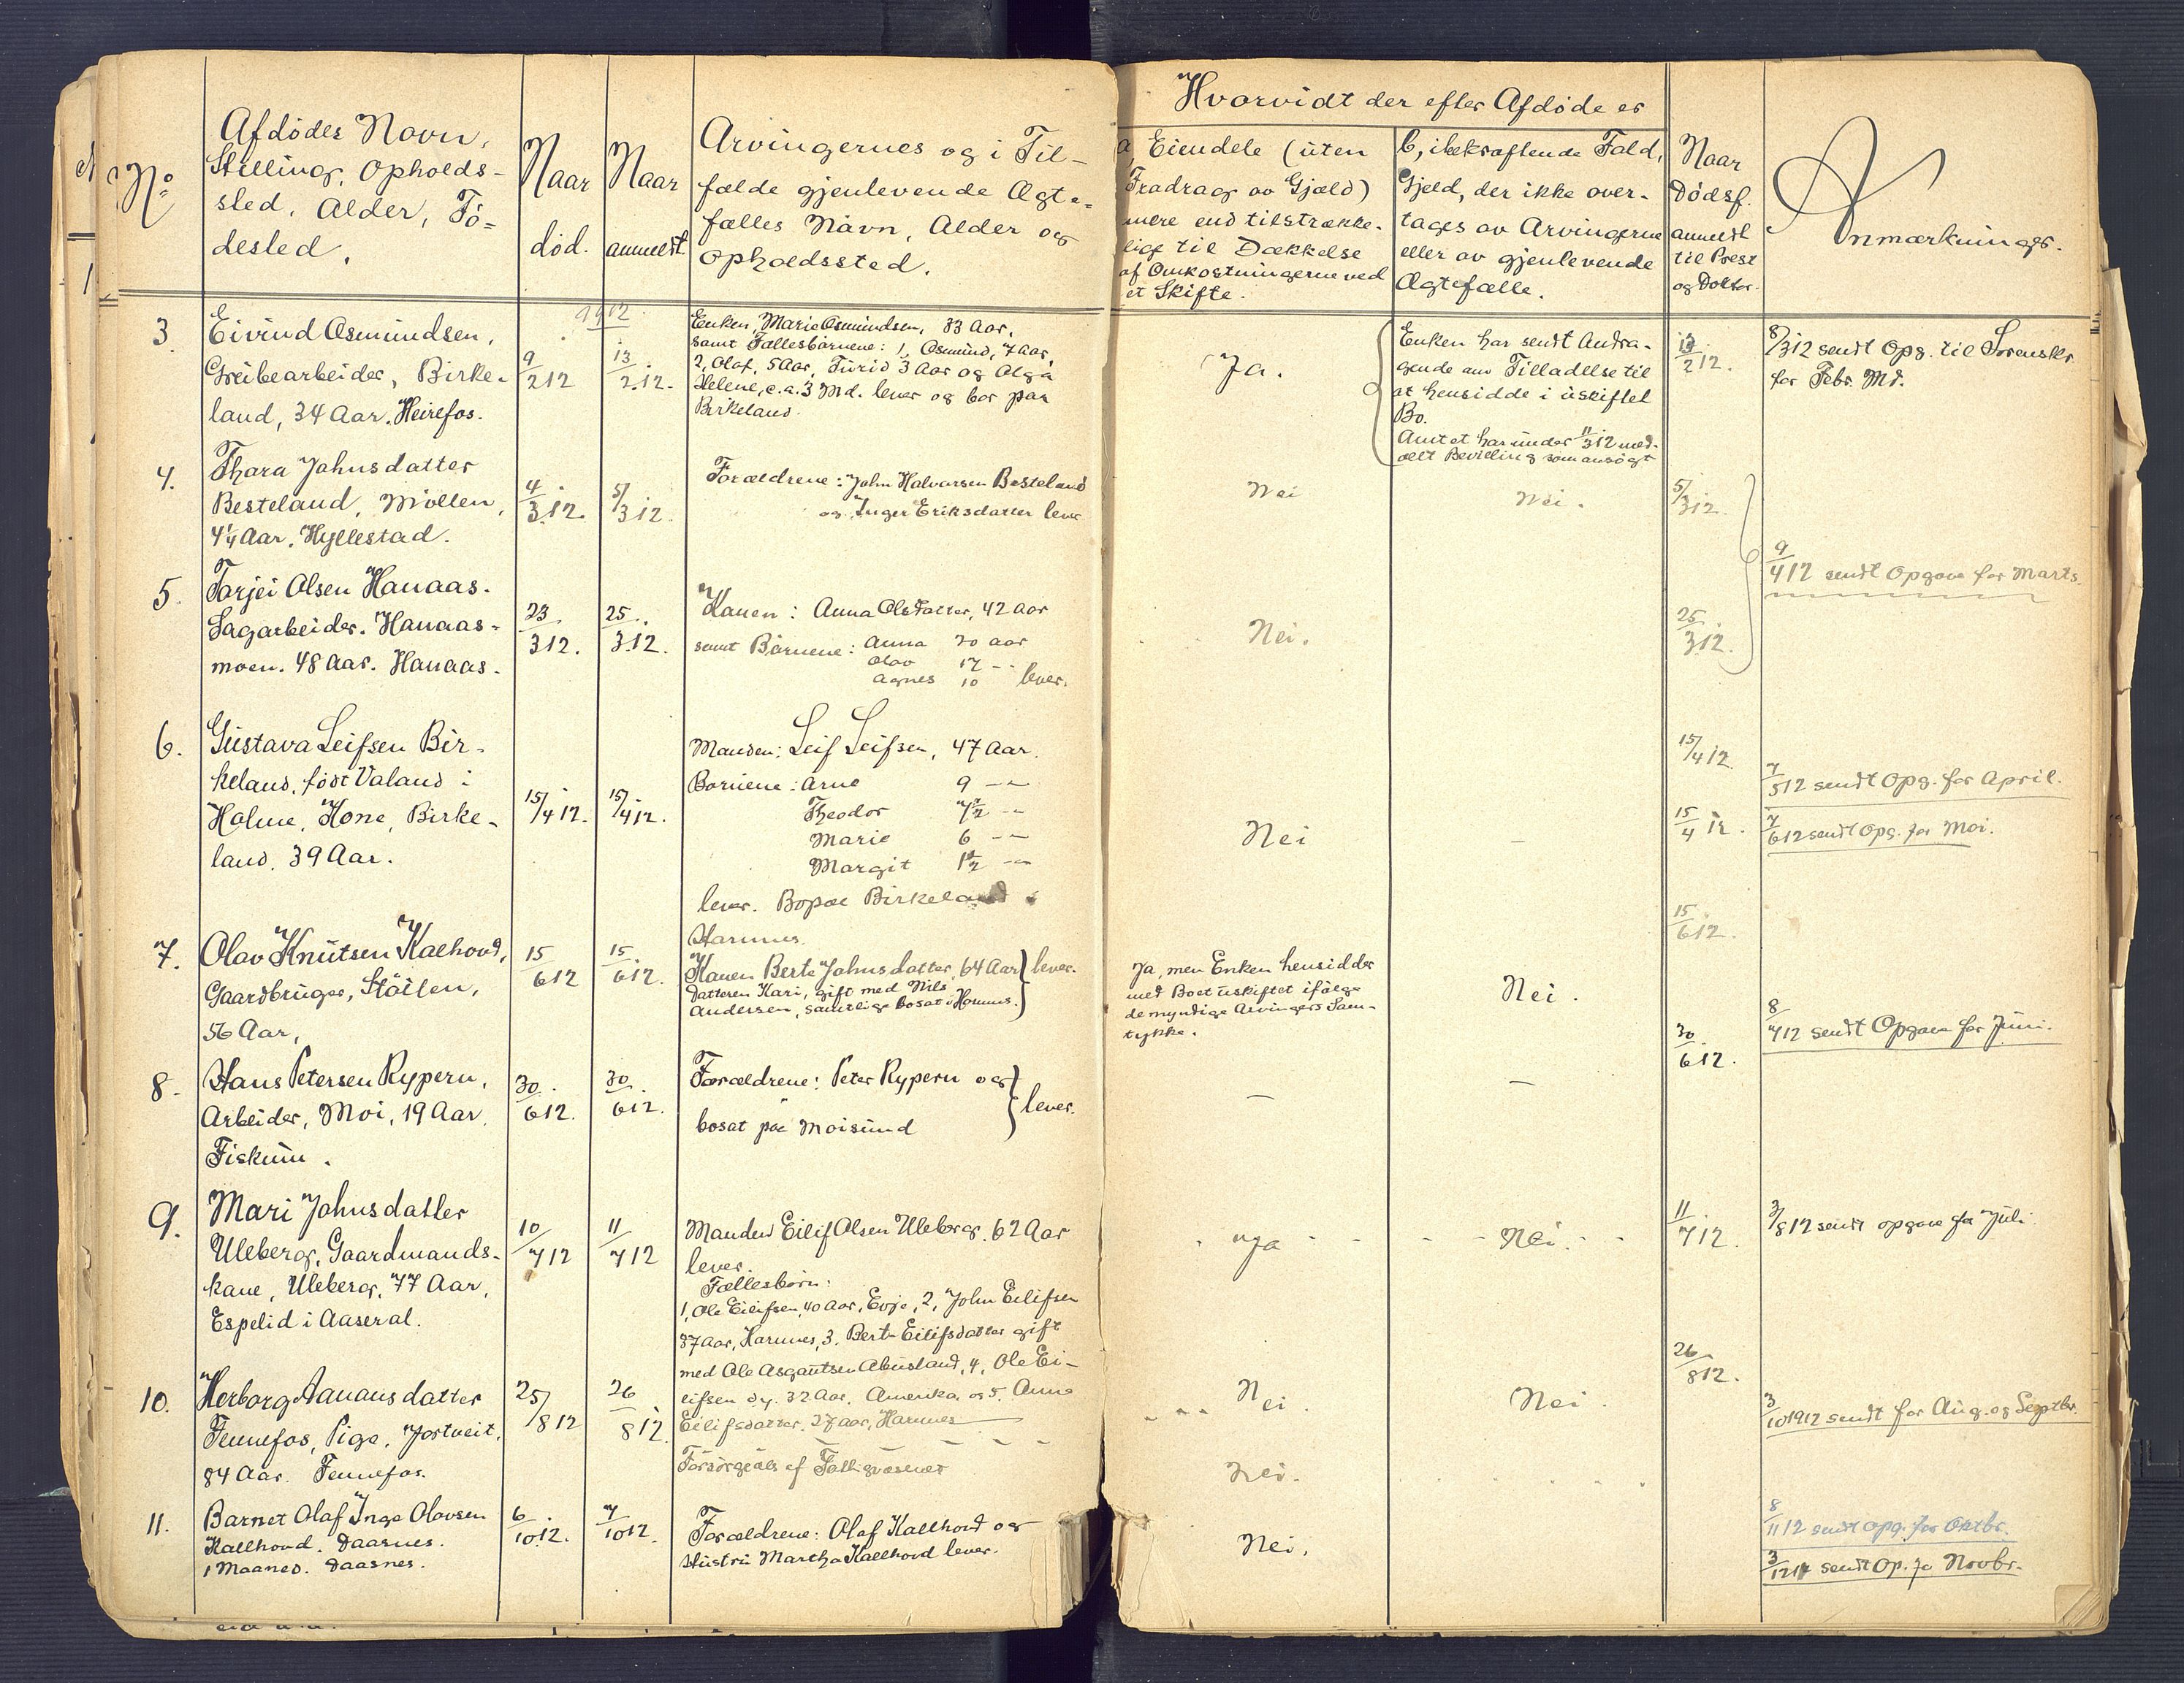 No
Afdödes Navn,
Stilling, Opholds-
sted, Alder, Fö-
desled.
Naar
död.
Naar
anmeldt.
Arvingernes og i Til-
fælde gjenlevende Ægte-
fælles Navn, Alder og
Opholdssted.
Hvorvidt der efter Afdöde er
a, Eiendele (uten
Fradrag av Gjæld)
mere end tilstrække-
lige til Dækkelse
af Omkostningerne ved
et Skifte.
b, i bekræftende Fald,
Gjeld, der ikke over-
tages av Arvingerne
eller av gjenlevende
Ægtefælle.
Naar
Dödsf.
anmeldt
til Prest
og Doktor.
Anmærkninger.
1912
3.
Eivind Osmundsen,
Gruibearbeider, Birke-
land, 34 Aar. Heirefos.
9/2 12
13/2 12.
Enken, Marie Osmundsen, 33 Aar,
samt Fællesbørnene: 1, Osmund, 7 Aar,
2, Olaf, 5 Aar, Turid 3 Aar og Olga
Helene, c.a. 3 Md. lever og bor paa
Birkeland.
Ja.
Enken har sendt Andra-
gende om Tilladelse til
at hensidde i uskiftet
Bo.
Amtet har under 11/3 12 med-
delt Bevilling som ansögt
13/2 12.
8/3 12 sendt Opg. til Sorenskr.
for Febr. Md.
4.
Thora Johnsdatter
Besteland, Möllen,
4 1/4 Aar, Hyllestad.
4/3 12.
5/3 12.
Forældrene: John Halvorsen Besteland
og Inger Eriksdatter lever
Nei
Nei.
5/3 12.
9/4 12 sendt Opgave for Marts.
5.
Tarjei Olsen Hanaas.
Sagarbeider. Hanaas-
moen. 48 Aar. Hanaas.
23/3 12.
25/3 12.
Konen: Anna Olsdatter, 42 Aar
samt Børnene: Anna 20 aar
Olav 17 -"-
Agnes 10 lever.
Nei.
25/3 12.
6.
Gustava Leifsen Bir-
keland, født Valand i
Holme, Kone, Birke-
land. 39 Aar.
15/4 12.
15/4 12.
Manden: Leif Leifsen, 47 Aar.
Børnene: Arne 9 -"-
Theodor 7 1/2 -"-
Marie 6 -"-
Margit 1 1/2 -"-
lever. Bopæl Birkeland i
Hornnes.
Nei
-
15/4 12
15/4 12.
7/5 12 sendt Opg. for April.
7/6 12 sendt Opg. for Mai.
7.
Olav Knutsen Kalhovd,
Gaardbruger, Stöilen,
56 Aar,
15/6 12
15/6 12.
Konen Berte Johnsdatter, 64 Aar } lever.
Datteren Kari, gift med Nils
Andersen, samtlige bosat i Hornnes.
Ja, men Enken hensidder
med Boet uskiftet ifølge
de myndige Arvingers Sam-
tykke.
Nei.
15/6 12.
8/7 12 sendt Opgave for Juni.
8.
Hans Petersen Rypern,
Arbeider, Moi, 19 Aar,
Fiskum.
30/6 12.
30/6 12.
Forældrene: Peter Rypern og
bosat paa Moisund } lever.
-
-
30/6 12.
9.
Mari Johnsdatter
Uleberg, Gaardmands-
kone, Uleberg, 77 Aar,
Espelid i Aaseral.
10/7 12
11/7 12
Manden Eilif Olsen Uleberg, 62 Aar
lever.
Fællesbörn:
1, Ole Eilifsen, 40 Aar, Evje, 2, John Eilifsen
37 Aar, Hornnes, 3. Berte Eilifsdatter gift
med Ole Asgautsen Abusland, 4, Ole Ei-
lifsen d.y. 32 Aar, Amerika, og 5. Anna
Eilifsdatter, 27 aar, Hornnes
Ja
Nei.
11/7 12.
3/8 12 sendt opgave for Juli.
10.
Herborg Aanansdatter
Fennefos, Pige, Jortveit,
84 Aar. Fennefos.
25/8 12
26/8 12.
Forsörgedes af Fattigvæsenet
Nei.
Nei.
Nei.
26/8 12.
3/10 1912 sendt for Aug. og Septbr.
11.
Barnet Olaf Inge Olavsen
Kallhovd. Daasnes.
1 Maaned. Daasnes.
6/10 12.
7/10 12.
Forældrene: Olaf Kallhovd og
Hustru Martha Kallhovd lever.
Nei.
8/11 12 sendt opg. for Oktbr.
3/12 12 sendt Op. for Novbr.